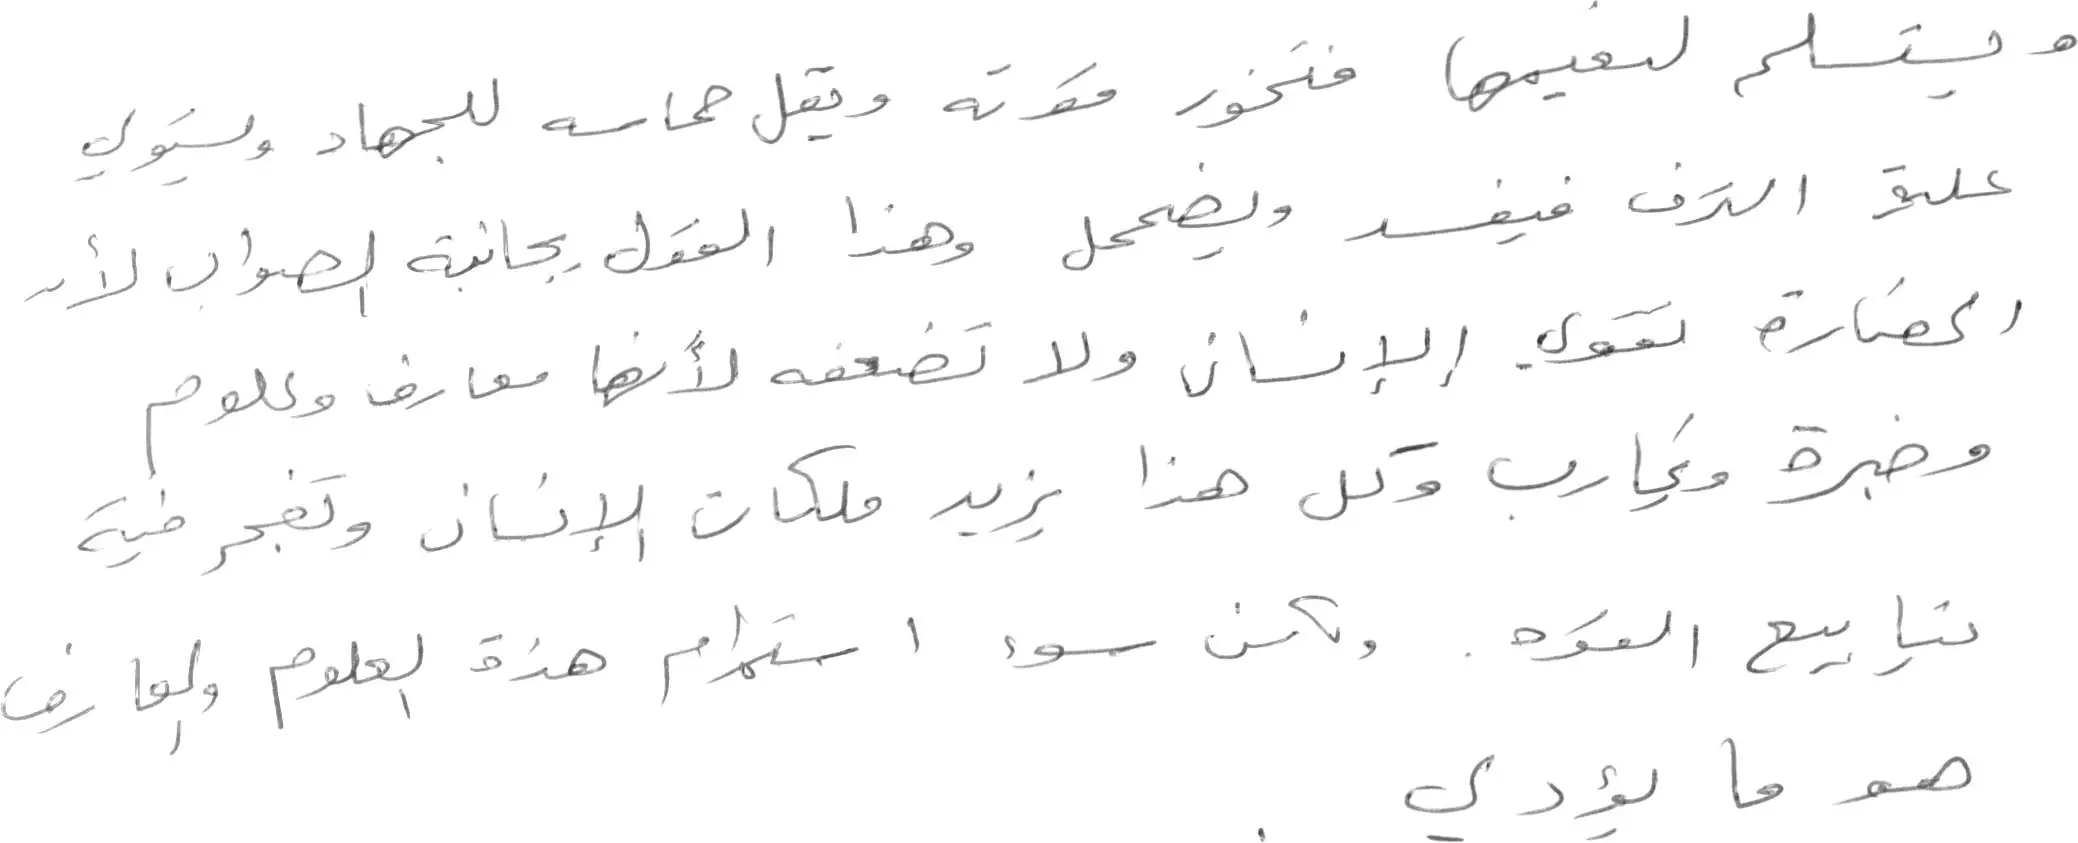 ويستسلم لنعيمها فتخور قوته ويقل حماسه للجهاد ويستولي
عليه الترف فيفسد ويضمحل وهذا القول يجانبه الصواب لأن
الحضارة تقوي الإنسان ولا تضعفه لأنها معارف وعلوم
وخبرة وتجارب وكل هذا يزيد ملكات الإنسان وتفجر فيه
ينابيع القوه. ولكن سوء استخدام هذه العلوم والمعارف
هو ما يؤدي .